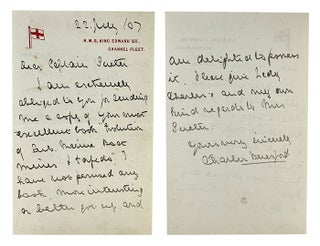 22 July /07
H.M.S. KING EDWARD VII.
CHANNEL FLEET.
Dear Captain Sueter
I am extremely
obliged to you for sending
me a copy of your most
excellent book Evolution
of Sub. Marine Boat
Mines & Torpedo. I
have not perused any
book more interesting
or better got up and
H.M.S. KING EDWARD VII.
CHANNEL FLEET.
am delighted to possess
it. Please give Lady
Charles's and my own
kind regards to Mrs
Sueter.
Yours very sincerely
Charles Beresford